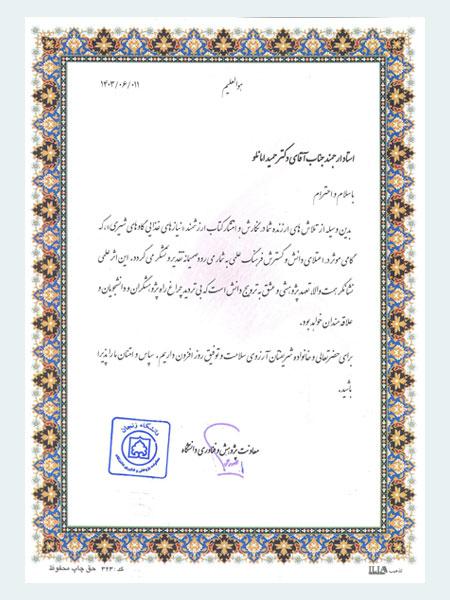 هوالعلیم
۱۴۰۳/۰۶/۰۱۱
استاد ارجمند جناب آقای دکتر حمید امانلو
با سلام و احترام
بدین وسیله از تلاش های ارزنده شما در نگارش و انتشار کتاب ارزشمند «نیازهای غذایی گاوهای شیری»، که
گامی موثر در اعتلای دانش و گسترش فرهنگ علمی به شمار می رود صمیمانه تقدیر و تشکر می گردد. این اثر علمی
نشانگر همت والا، تعهد پژوهشی و عشق به ترویج دانش است که بی تردید چراغ راه پژوهشگران و دانشجویان و
علاقه مندان خواهد بود.
برای حضرتعالی و خانواده شریفتان آرزوی سلامت و توفیق روز افزون داریم. سپاس و امتنان ما را پذیرا
باشید.
معاونت پژوهش و فناوری دانشگاه
دانشگاه زنجان
کد: ۳۲۳ حق چاپ محفوظ
تذهیب